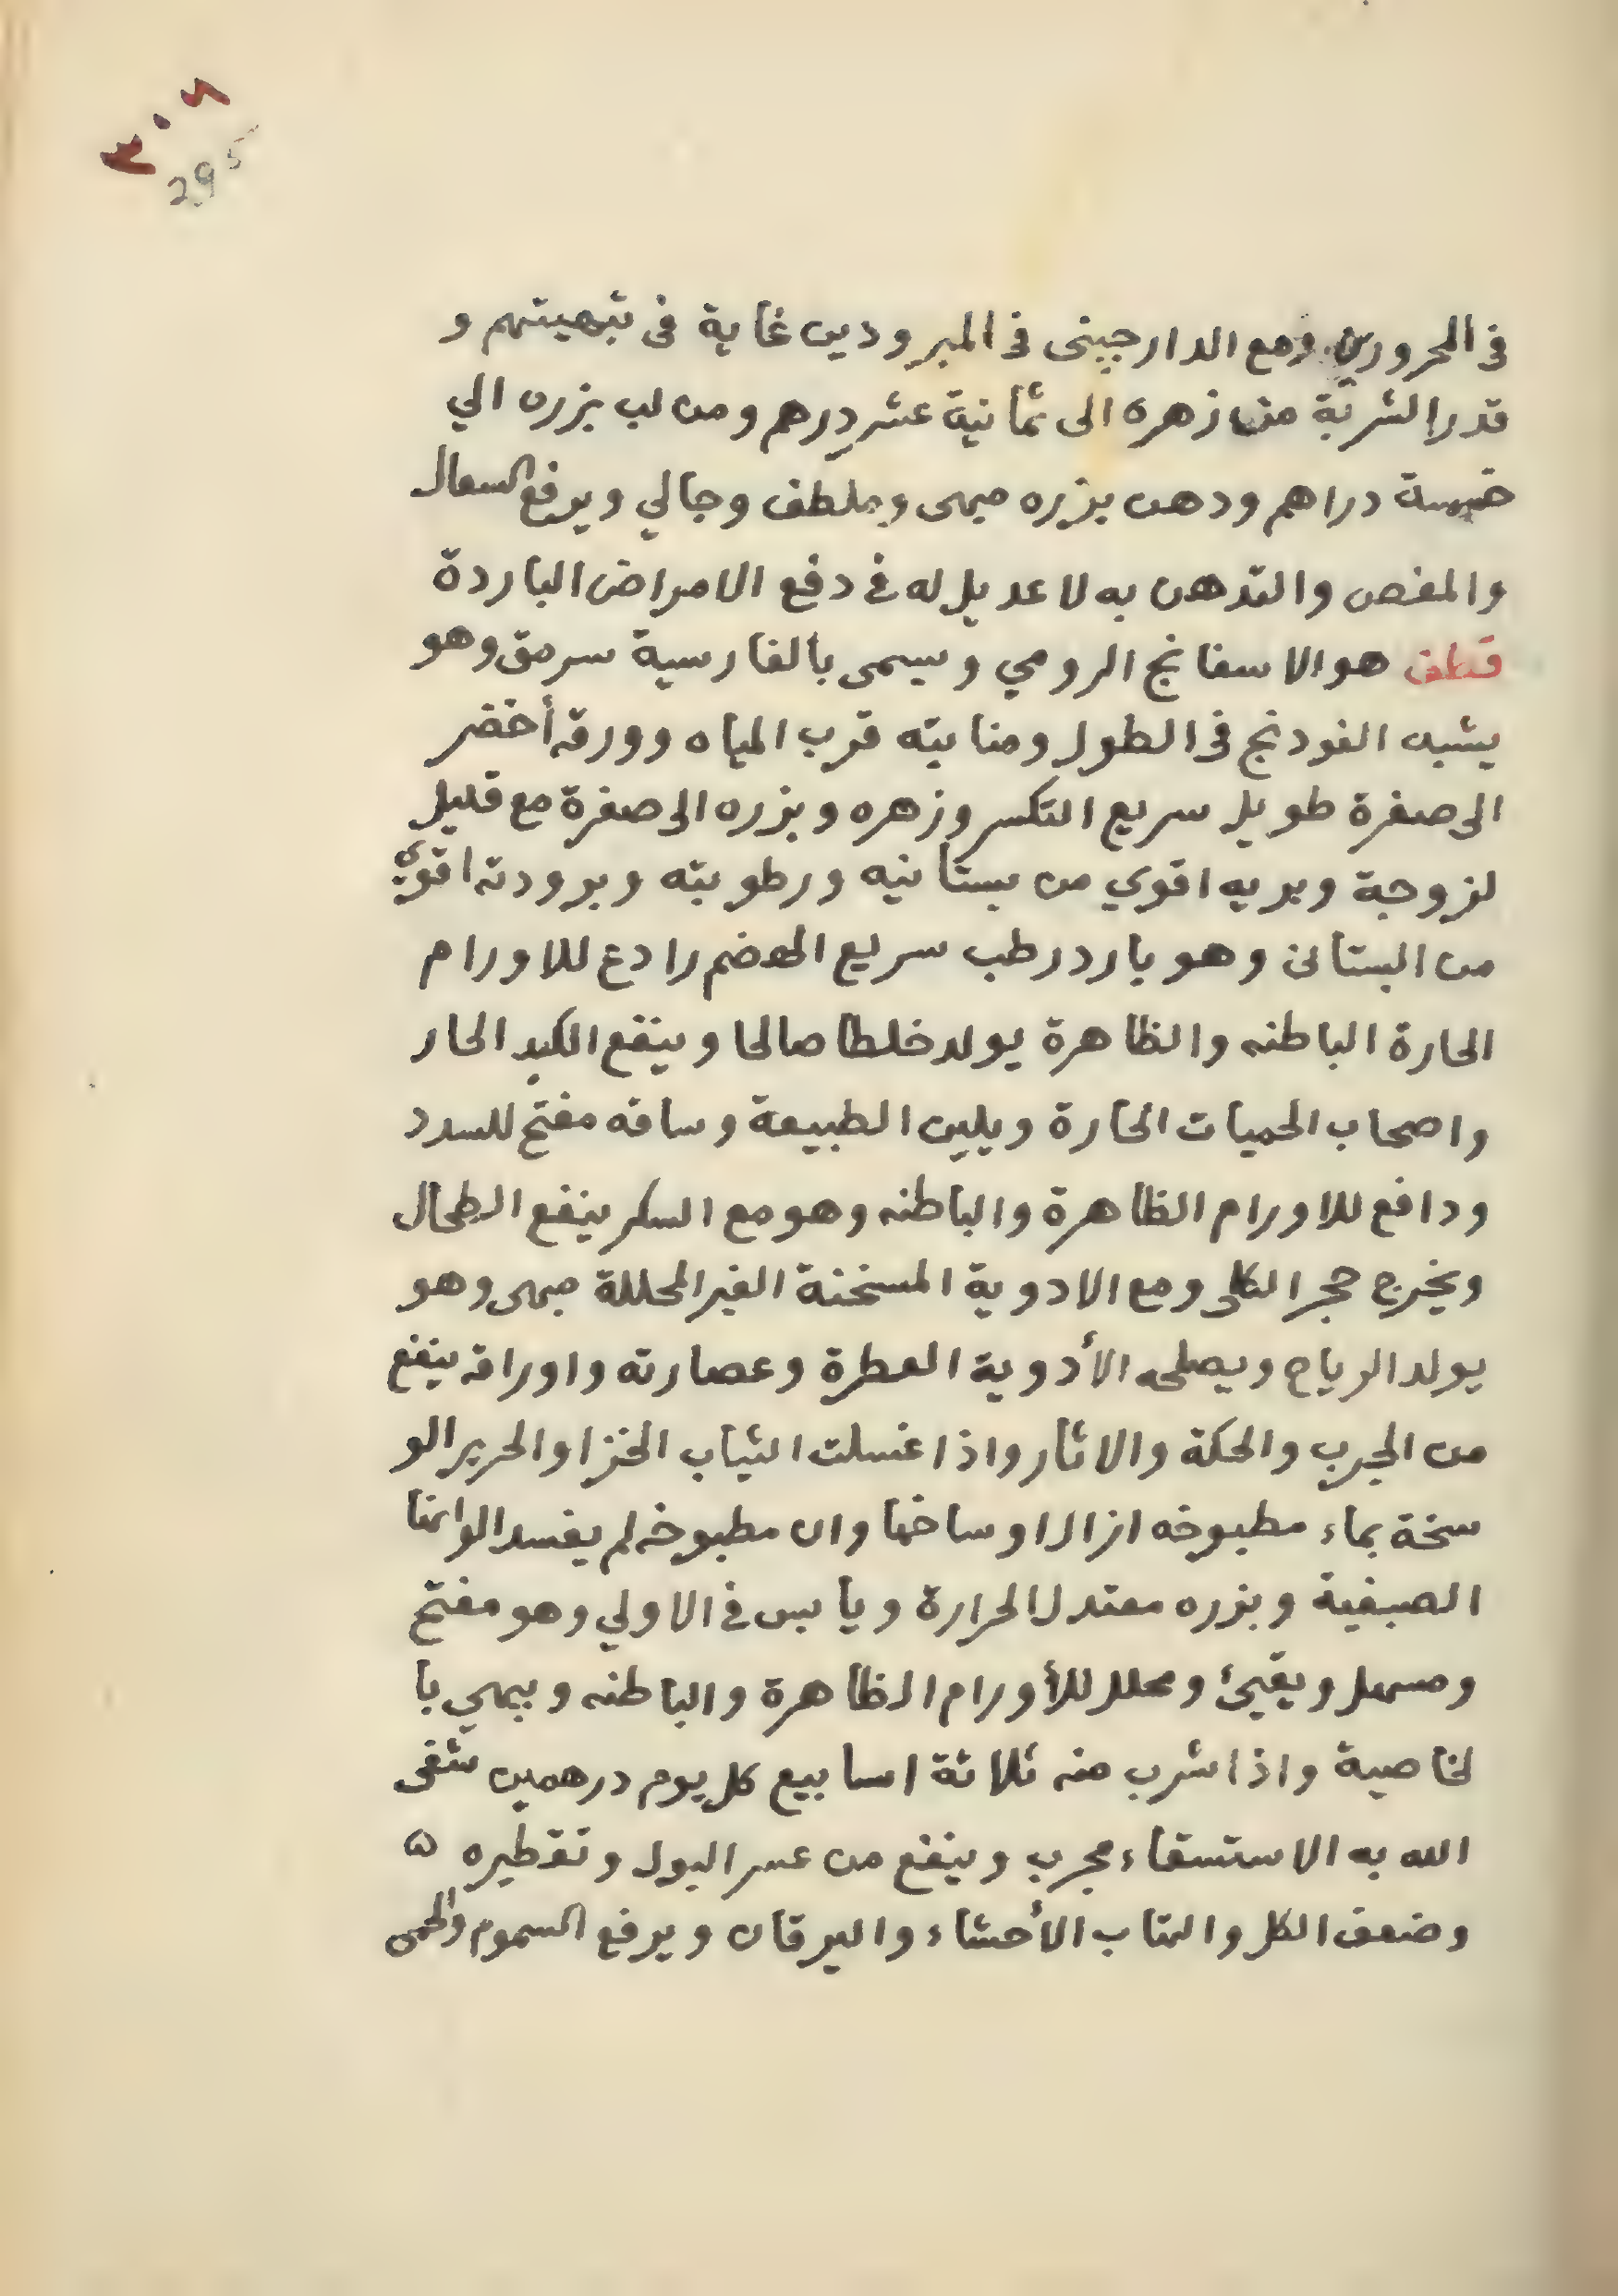 ٣٠٦
295
فى المحرورين ومع الدارجينى فى المبرودين غاية فى تبهيتهم و
قدر الشربة من زهره الى ثمانية عشر درهم ومن لب بزره الي
خمسة دراهم ودهن بزره مبهى وملطف وجالي ويرفع السعال
والمغص والتدهن به لا عديل له فى دفع الامراض الباردة
قطف هو الاسفانج الرومي ويسمى بالفارسية سرمق وهو
يشبه الفودنج فى الطول ومنابته قرب المياه وورقه أخضر
الى صفرة طويل سريع التكسر وزهره وبزره الى صفرة مع قليل
لزوجة وبريه اقوي من بستانيه ورطوبته وبرودته اقوي
من البستانى وهو بارد رطب سريع الهضم رادع للاورام
الحارة الباطنه والظاهرة يولد خلطا صالحا وينفع الكبد الحار
واصحاب الحميات الحارة ويلين الطبيعة وساقه مفتح للسدد
ودافع للاورام الظاهرة والباطنه وهو مع السكر ينفع الطحال
ويخرج حجر الكلى ومع الادوية المسخنة الغير المحللة مبهى وهو
يولد الرياح ويصلحه الأدوية العطرة وعصارته واوراقه ينفع
من الجرب والحكة والاثار واذا غسلت الثياب الخز او الحرير الو
سخة بماء مطبوخه ازال اوساخها وان مطبوخه لم يفسد الوانها
الصبغية وبزره معتدل الحرارة ويابس فى الاولي وهو مفتح
ومسهل ويقيئ ومحلل للأورام الظاهرة والباطنه ويبهي با
لخاصية واذا شرب منه ثلاثة اسابيع كل يوم درهمين شفى
الله به الاستسقاء مجرب وينفع من عسر البول وتقطيره ٥
وضعف الكل والتاب الأحشاء واليرقان ويرفع السموم والحمى